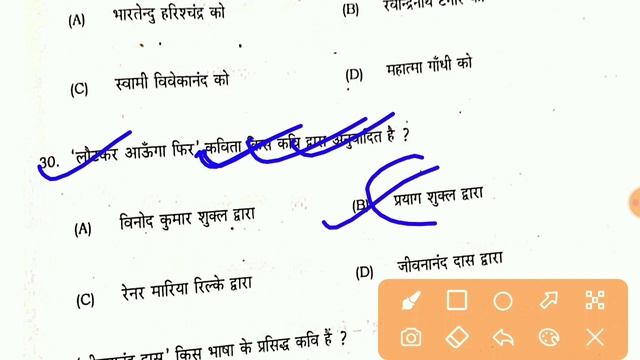 (A) भारतेन्दु हरिश्चंद्र को
(B) रवीन्द्रनाथ टैगोर को
(C) स्वामी विवेकानंद को
(D) महात्मा गाँधी को
30. 'लौटकर आऊँगा फिर' कविता किस कवि द्वारा अनुवादित है ?
(A) विनोद कुमार शुक्ल द्वारा
(B) प्रयाग शुक्ल द्वारा
(C) रेनर मारिया रिल्के द्वारा
(D) जीवनानंद दास द्वारा
दास' किस भाषा के प्रसिद्ध कवि हैं ?